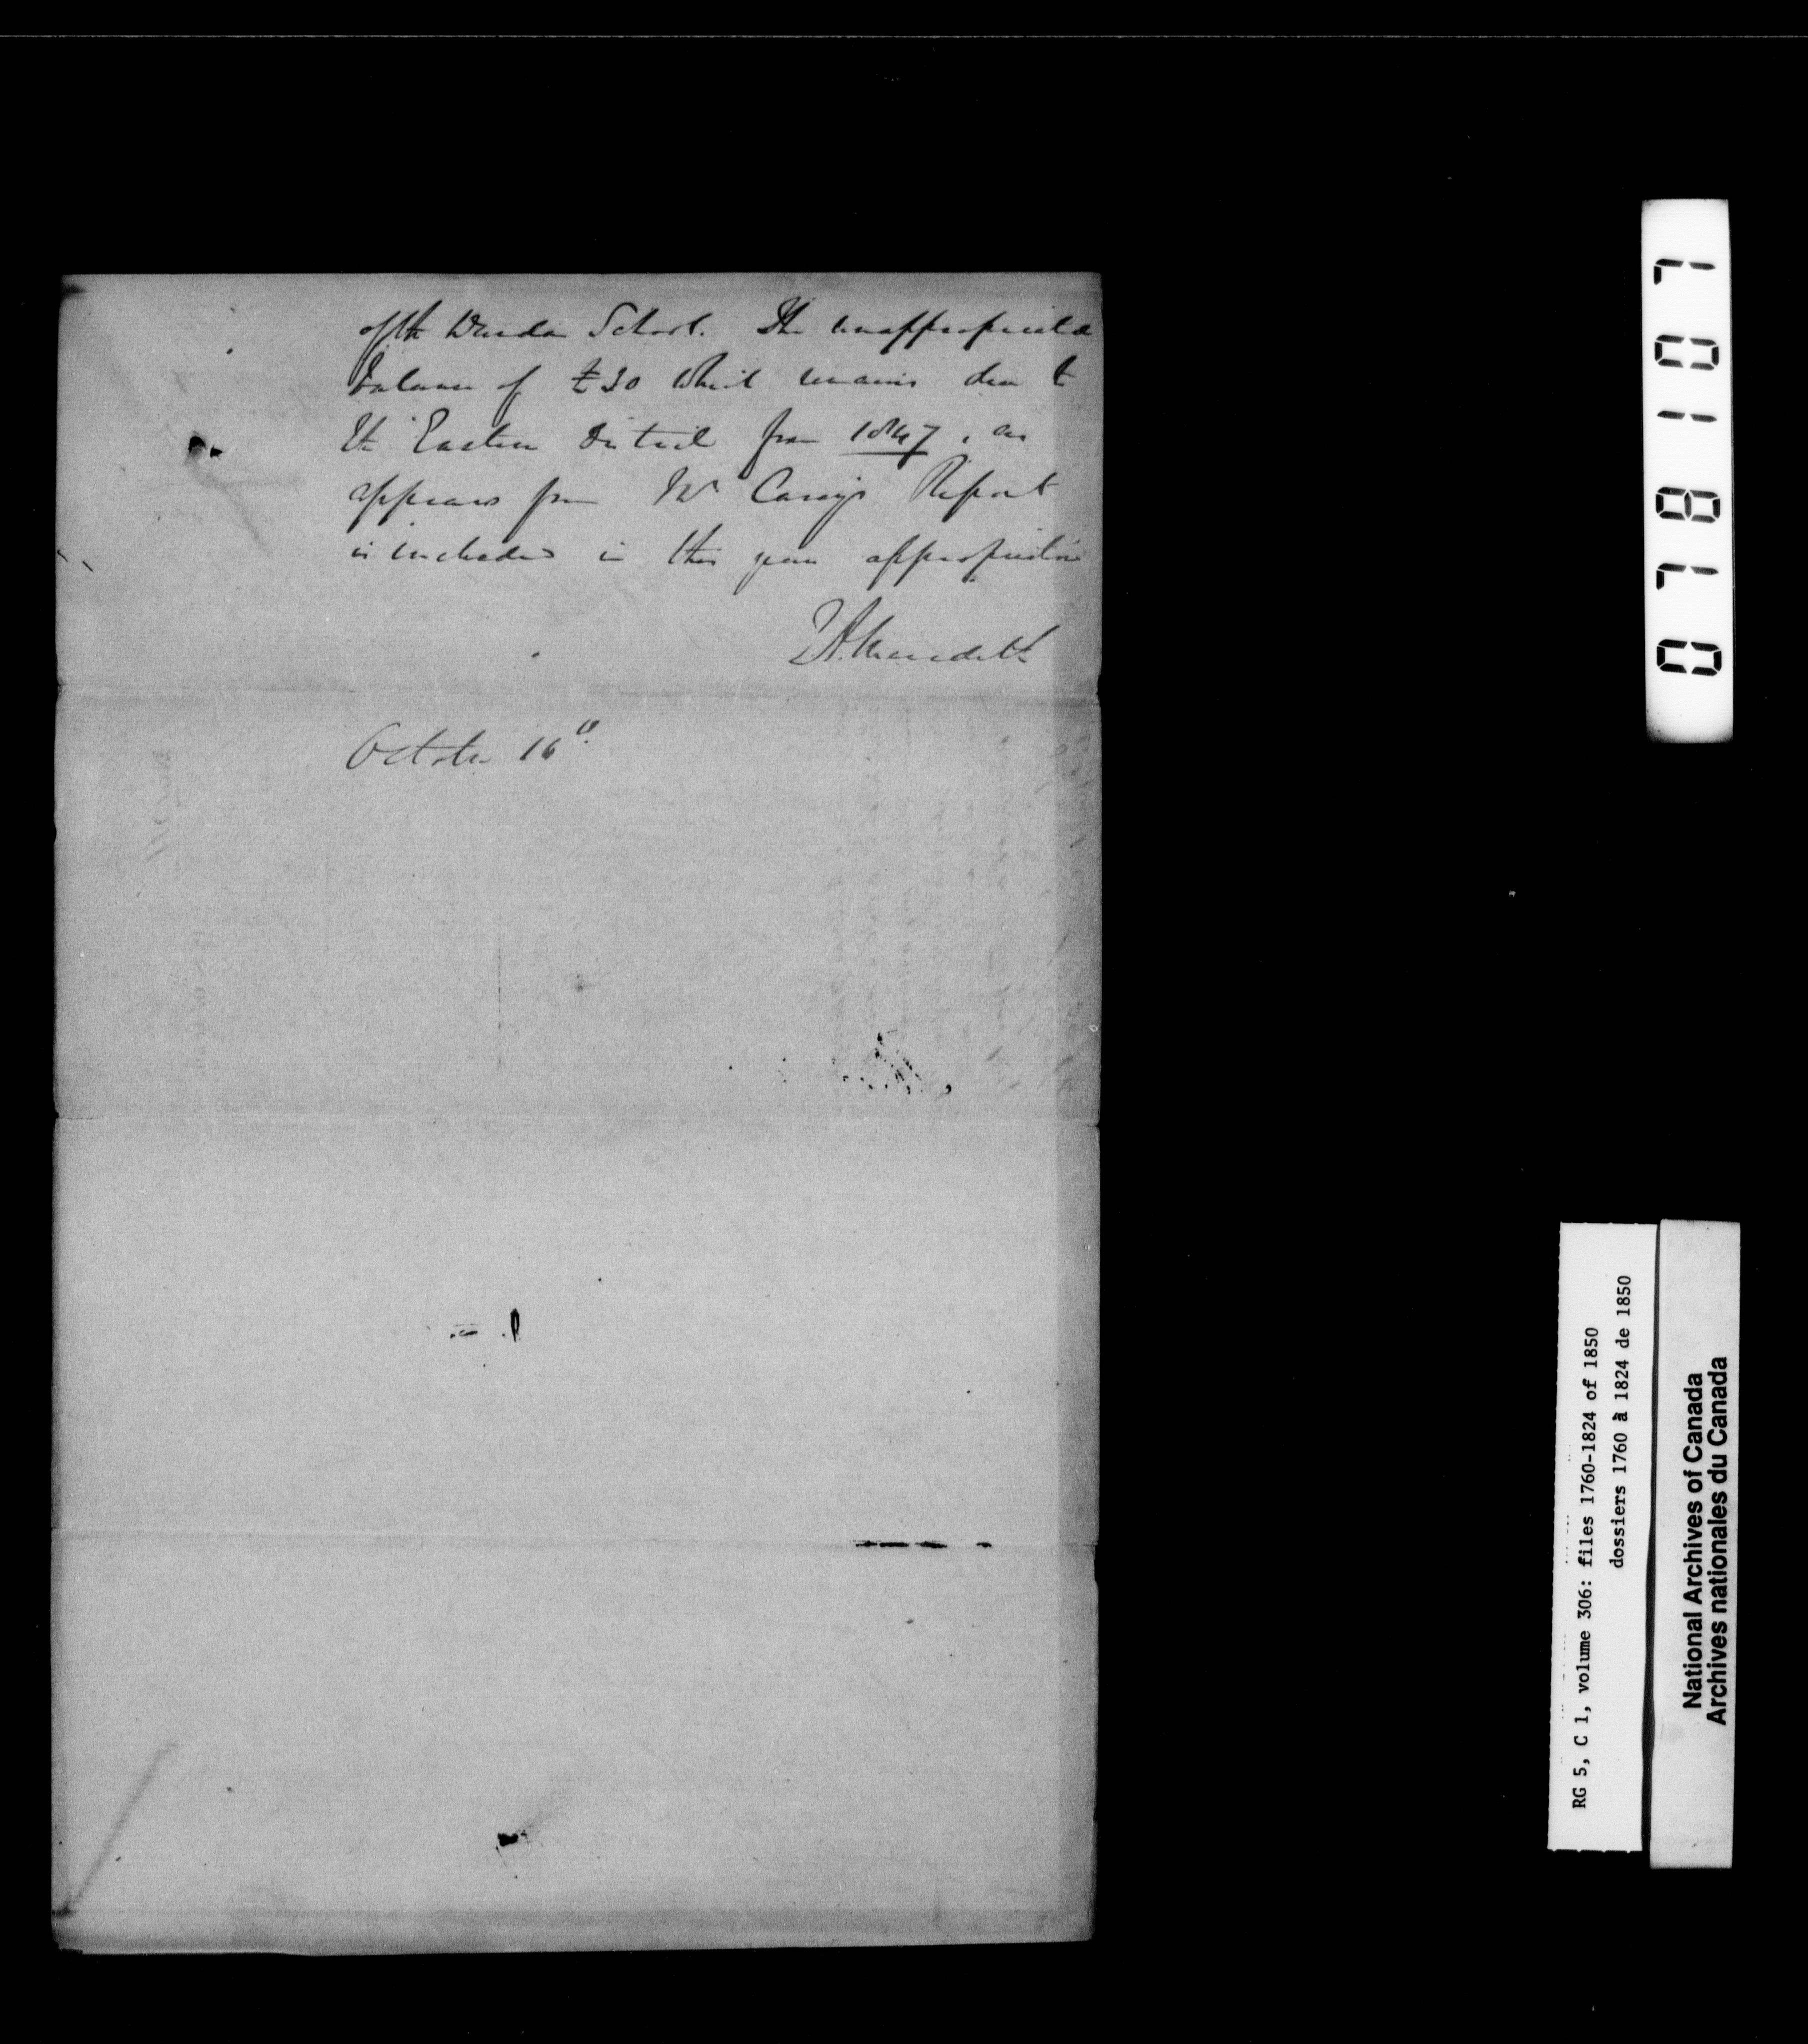 of the School. The unappropriated
balance of £30 which remains due to
the Eastern District from 1847, as
appears from Mr Carey's Report
is included in this years appropriation
Meredith
October 16th
0781107
RG 5, C 1, volume 306: files 1760-1824 of 1850
dossiers 1760 à 1824 de 1850
National Archives of Canada
Archives nationales du Canada